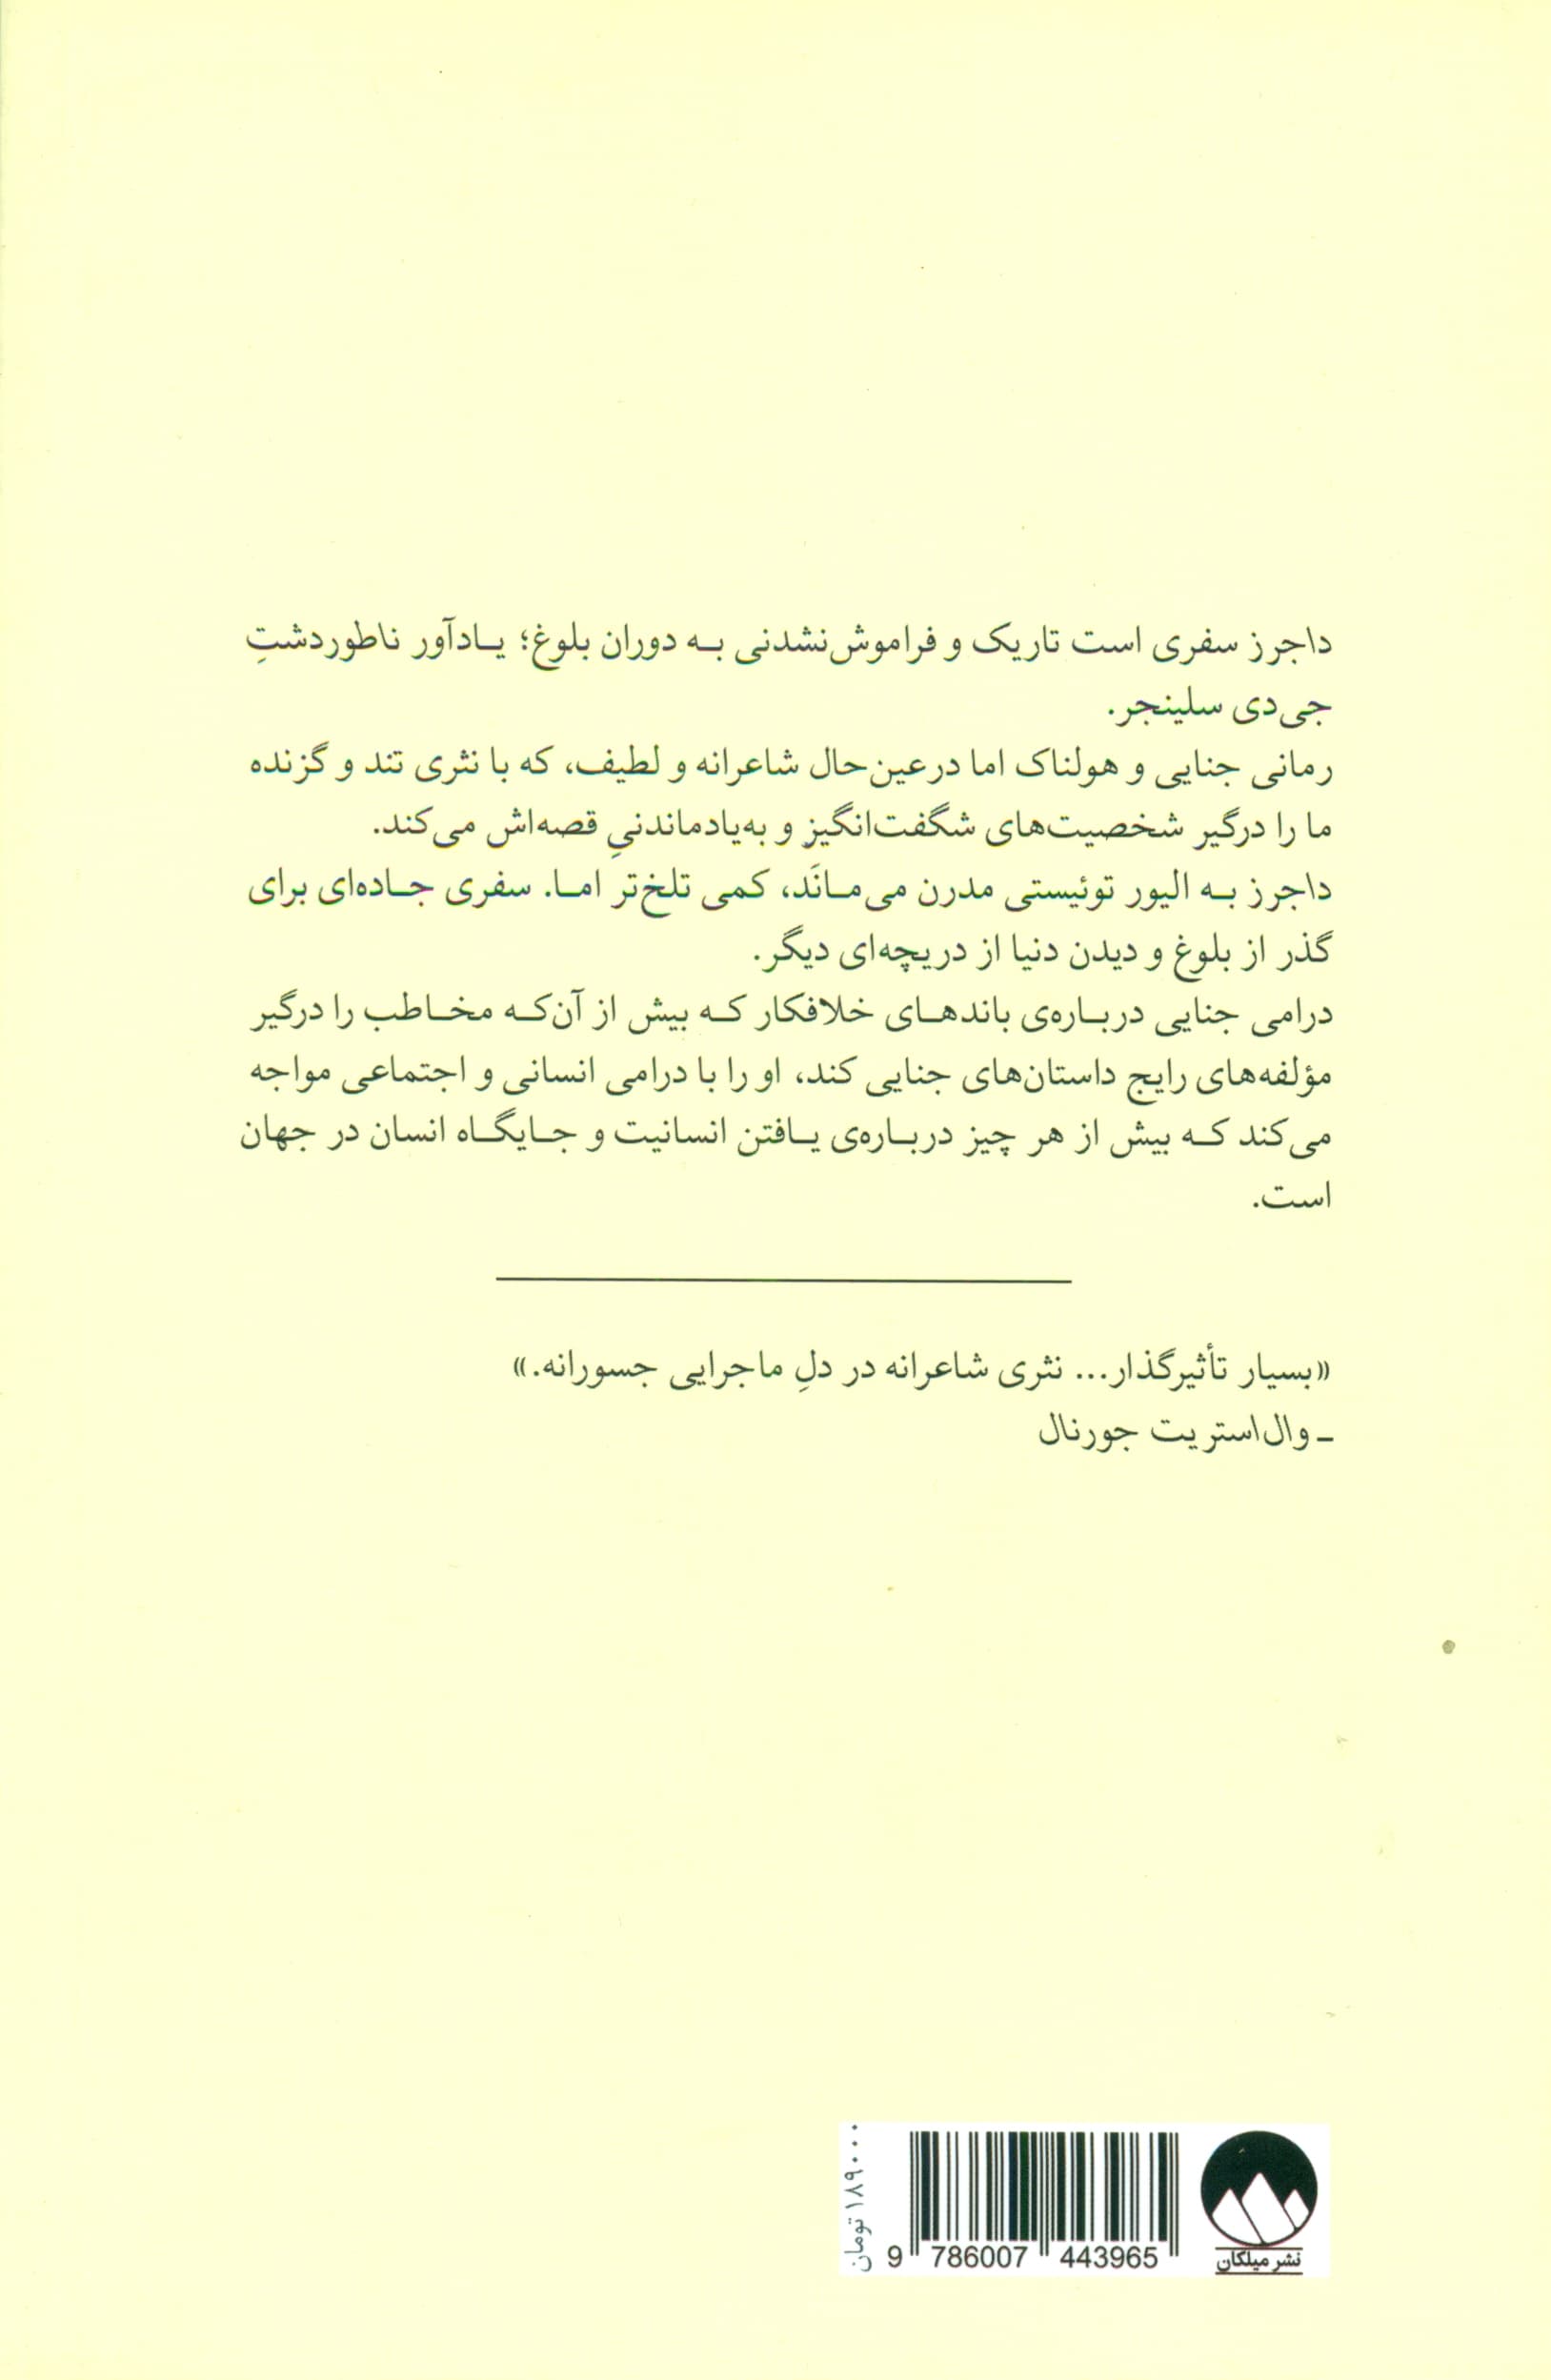 داجرز سفری است تاریک و فراموش‌نشدنی به دوران بلوغ؛ یادآور ناطوردشتِ
جی‌دی سلینجر.
رمانی جنایی و هولناک اما درعین‌حال شاعرانه و لطیف، که با نثری تند و گزنده
ما را درگیر شخصیت‌های شگفت‌انگیز و به‌یادماندنیِ قصه‌اش می‌کند.
داجرز به الیور توئیستی مدرن می‌مانَد، کمی تلخ‌تر اما. سفری جاده‌ای برای
گذر از بلوغ و دیدن دنیا از دریچه‌ای دیگر.
درامی جنایی درباره‌ی باندهای خلافکار که بیش از آن‌که مخاطب را درگیر
مؤلفه‌های رایج داستان‌های جنایی کند، او را با درامی انسانی و اجتماعی مواجه
می‌کند که بیش از هر چیز درباره‌ی یافتن انسانیت و جایگاه انسان در جهان
است.
«بسیار تأثیرگذار... نثری شاعرانه در دلِ ماجرایی جسورانه.»
ـ وال‌استریت جورنال
۱۸۹۰۰۰ تومان
9 786007 443965
نشر میلکان